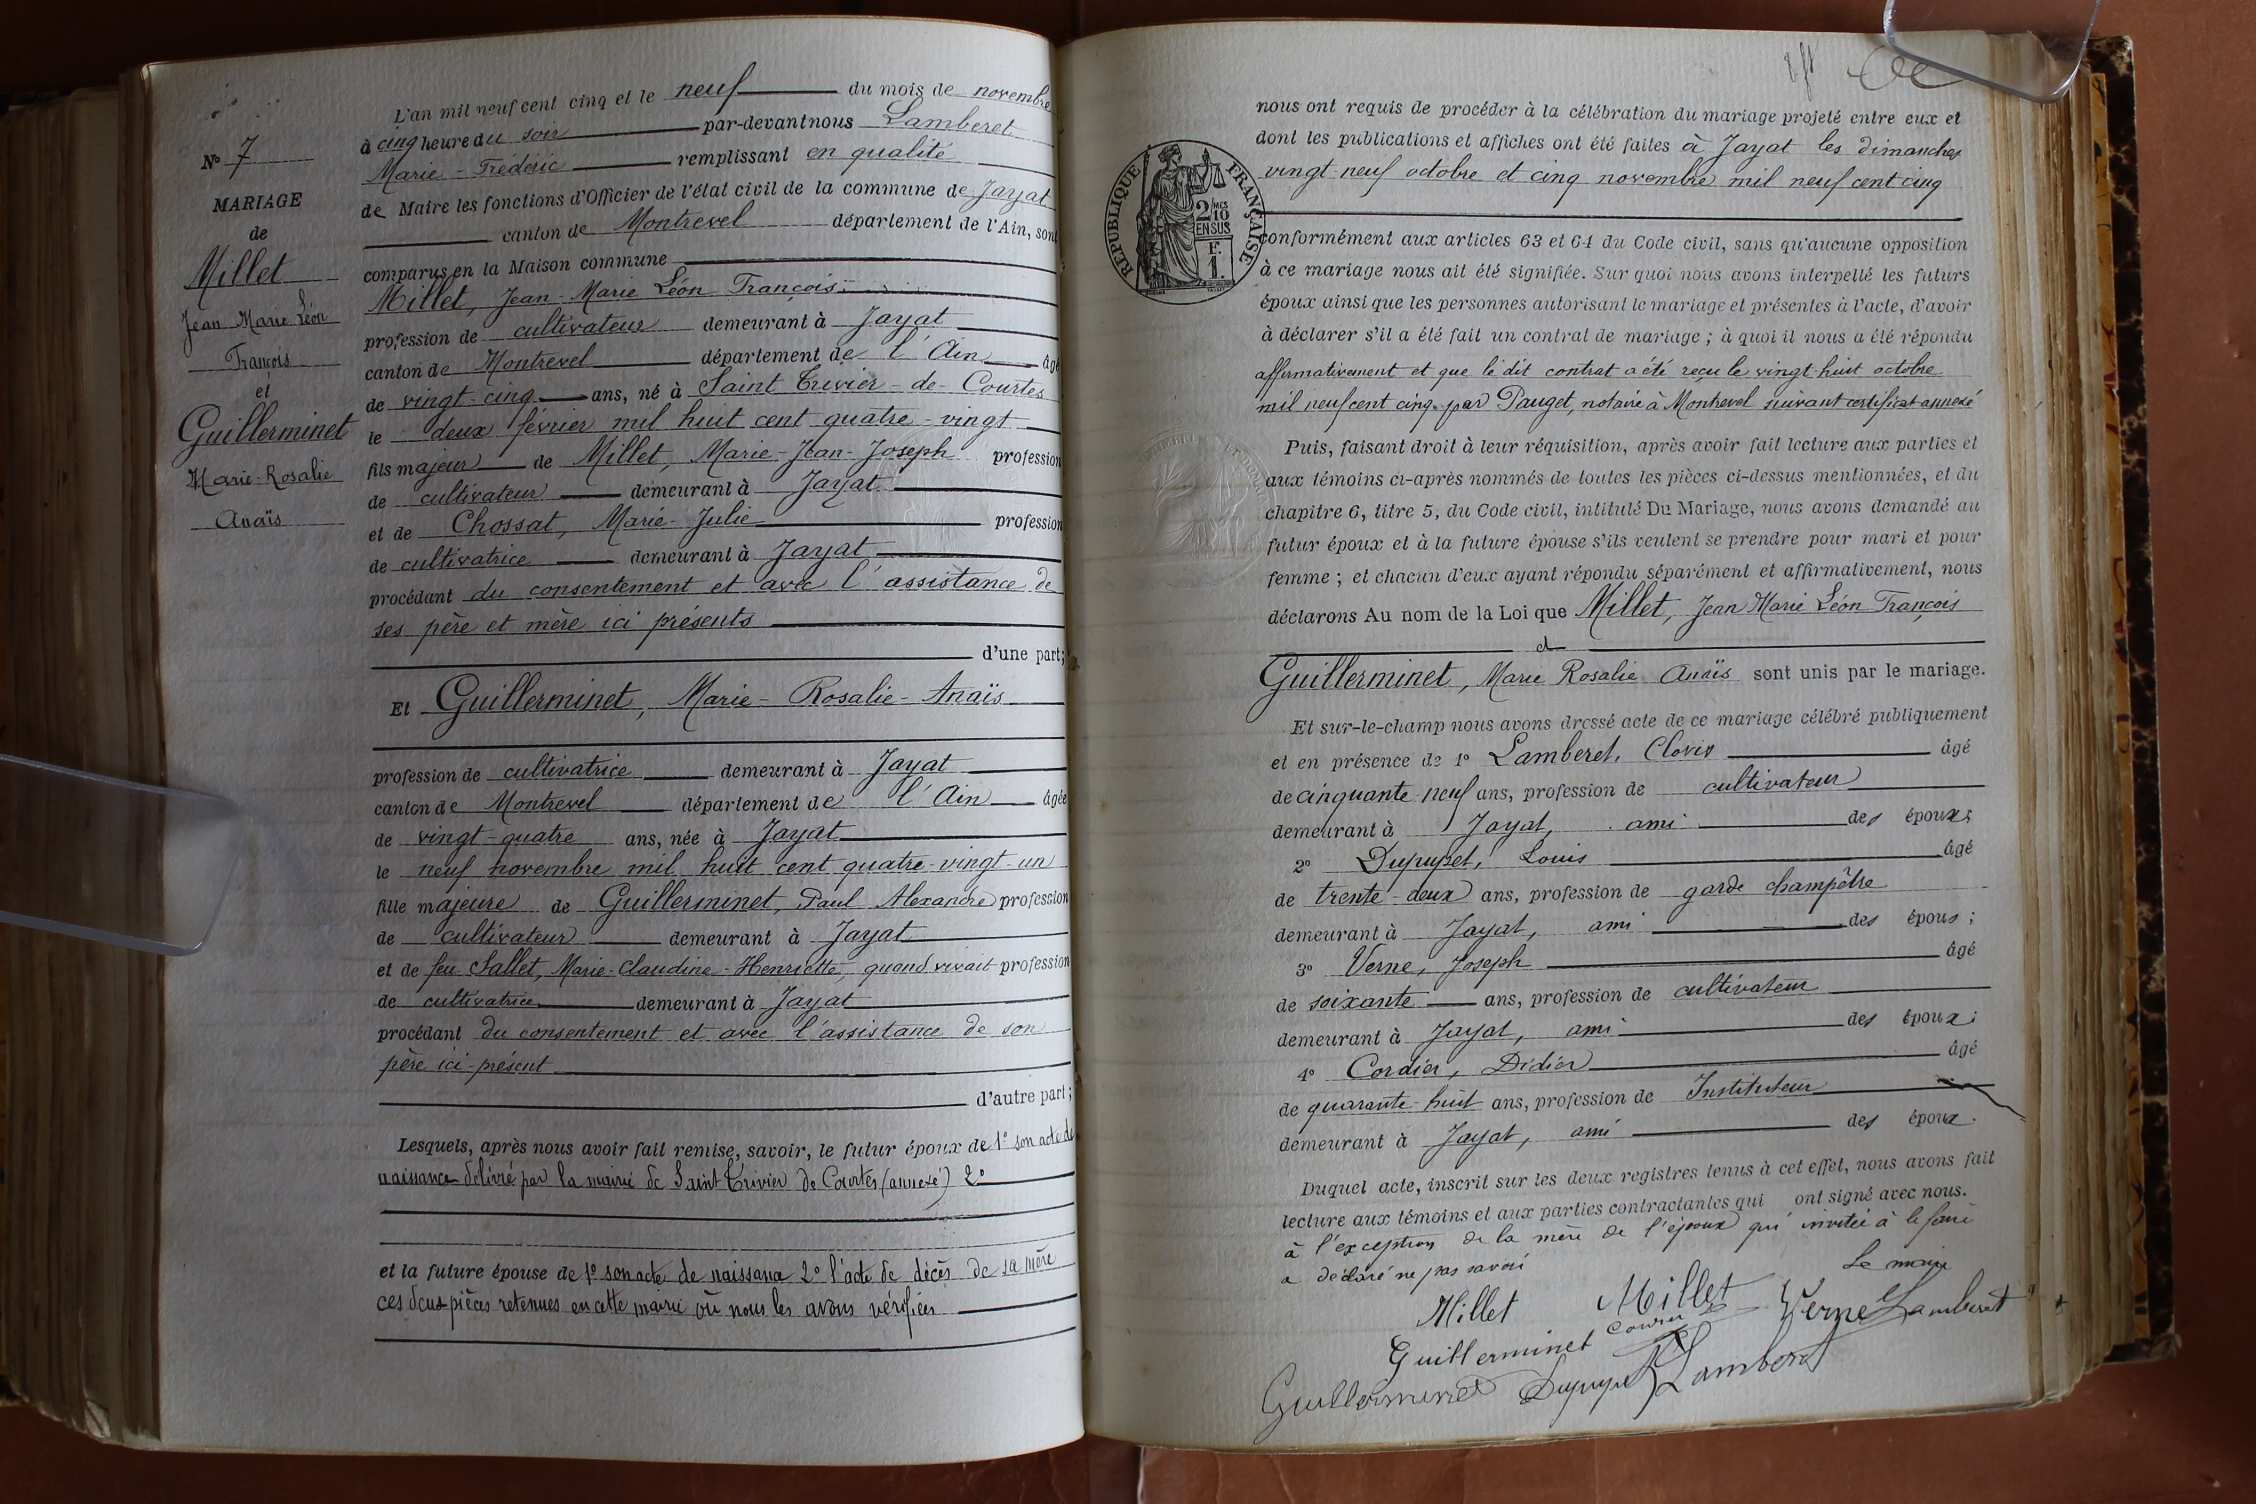 N° 7
MARIAGE
de
Millet
Jean Marie Léon
François
et
Guillerminet
Marie-Rosalie
Anaïs
L'an mil neuf cent cinq et le neuf du mois de novembre
à cinq heure du soir par-devant nous Lamberet
Marie-Frédéric remplissant en qualité
de Maire les fonctions d'Officier de l'état civil de la commune de Jayat
canton de Montrevel département de l'Ain, sont
comparus en la Maison commune
Millet, Jean-Marie Léon François
profession de cultivateur demeurant à Jayat
canton de Montrevel département de l'Ain âgé
de vingt-cinq ans, né à Saint Trivier-de-Courtes
le deux février mil huit cent quatre-vingt
fils majeur de Millet, Marie-Jean-Joseph profession
de cultivateur demeurant à Jayat
et de Chossat, Marie-Julie profession
de cultivatrice demeurant à Jayat
procédant du consentement et avec l'assistance de
ses père et mère ici présents
d'une part;
Et Guillerminet, Marie-Rosalie-Anaïs
profession de cultivatrice demeurant à Jayat
canton de Montrevel département de l'Ain âgée
de vingt-quatre ans, née à Jayat
le neuf novembre mil huit cent quatre-vingt-un
fille majeure de Guillerminet, Paul Alexandre profession
de cultivateur demeurant à Jayat
et de feu Sallet, Marie-Claudine-Henriette, quand vivait profession
de cultivatrice demeurant à Jayat
procédant du consentement et avec l'assistance de son
père ici-présent
d'autre part;
Lesquels, après nous avoir fait remise, savoir, le futur époux de 1° son acte de
naissance délivré par la mairie de Saint Trivier de Courtes (annexé) 2°
et la future épouse de 1° son acte de naissance 2° l'acte de décès de sa mère
ces deux pièces retenues en cette mairie où nous les avons vérifiées
nous ont requis de procéder à la célébration du mariage projeté entre eux et
dont les publications et affiches ont été faites à Jayat les dimanches
vingt-neuf octobre et cinq novembre mil neuf cent cinq
RÉPUBLIQUE FRANÇAISE
2/10 MES
EN SUS
F.
1.
conformément aux articles 63 et 64 du Code civil, sans qu'aucune opposition
à ce mariage nous ait été signifiée. Sur quoi nous avons interpellé les futurs
époux ainsi que les personnes autorisant le mariage et présentes à l'acte, d'avoir
à déclarer s'il a été fait un contrat de mariage; à quoi il nous a été répondu
affirmativement et que le dit contrat a été reçu le vingt-huit octobre
mil neuf cent cinq par Pauget, notaire à Montrevel suivant certificat annexé
Puis, faisant droit à leur réquisition, après avoir fait lecture aux parties et
aux témoins ci-après nommés de toutes les pièces ci-dessus mentionnées, et du
chapitre 6, titre 5, du Code civil, intitulé Du Mariage, nous avons demandé au
futur époux et à la future épouse s'ils veulent se prendre pour mari et pour
femme; et chacun d'eux ayant répondu séparément et affirmativement, nous
déclarons Au nom de la Loi que Millet, Jean Marie Léon François
et
Guillerminet, Marie Rosalie Anaïs sont unis par le mariage.
Et sur-le-champ nous avons dressé acte de ce mariage célébré publiquement
et en présence de 1° Lamberet, Clovis âgé
de cinquante neuf ans, profession de cultivateur
demeurant à Jayat, ami des époux;
2° Dupupet, Louis âgé
de trente-deux ans, profession de garde champêtre
demeurant à Jayat, ami des époux;
3° Verne, Joseph âgé
de soixante ans, profession de cultivateur
demeurant à Jayat, ami des époux;
4° Cordier, Didier âgé
de quarante-huit ans, profession de Instituteur
demeurant à Jayat, ami des époux.
Duquel acte, inscrit sur les deux registres tenus à cet effet, nous avons fait
lecture aux témoins et aux parties contractantes qui ont signé avec nous.
à l'exception de la mère de l'époux qui invitée à le faire
a déclaré ne pas savoir
Le maire
Millet Millet Verne Lamberet
Guillerminet
Guillerminet Dupupet Lamberet